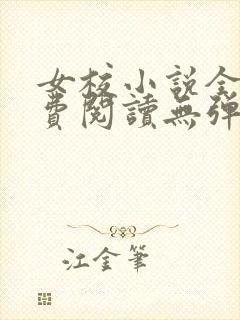 女校小説全
費閱讀無彈
江金筆